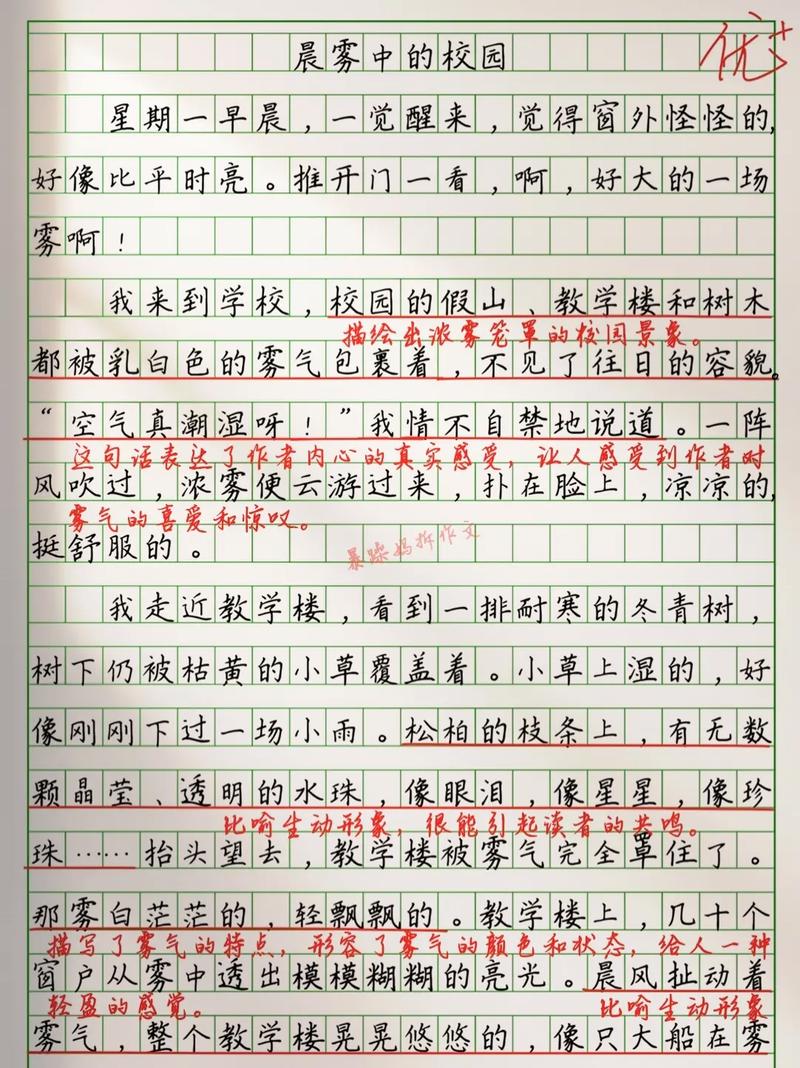 晨雾中的校园
优+
星期一早晨，一觉醒来，觉得窗外怪怪的，
好像比平时亮。推开门一看，啊，好大的一场
雾啊！
我来到学校，校园的假山、教学楼和树木
描绘出浓雾笼罩的校园景象。
都被乳白色的雾气包裹着，不见了往日的容貌。
“空气真潮湿呀！”我情不自禁地说道。一阵
这句话表达了作者内心的真实感受，让人感受到作者对
风吹过，浓雾便云游过来，扑在脸上，凉凉的，
雾气的喜爱和惊叹。
挺舒服的。
暴躁妈拆作文
我走近教学楼，看到一排耐寒的冬青树，
树下仍被枯黄的小草覆盖着。小草上湿的，好
像刚刚下过一场小雨。松柏的枝条上，有无数
颗晶莹、透明的水珠，像眼泪，像星星，像珍
比喻生动形象，很能引起读者的共鸣。
珠……抬头望去，教学楼被雾气完全罩住了。
那雾白茫茫的，轻飘飘的。教学楼上，几十个
描写了雾气的特点，形容了雾气的颜色和状态，给人一种
窗户从雾中透出模模糊糊的亮光。晨风扯动着
轻盈的感觉。
比喻生动形象
雾气，整个教学楼晃晃悠悠的，像只大船在雾